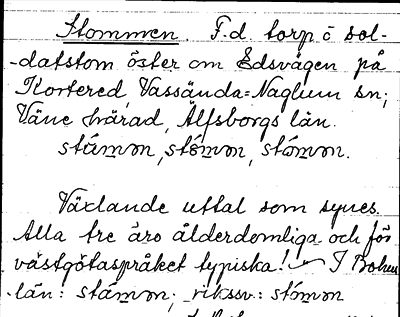 Stommen. F.d. torp å sol-
-datstom öster om Edsvägen på
Kortered, Vassända=Naglum sn;
Väne härad, Älfsborgs län.
ståmmn, stômmn, stômmn.
Växlande uttal som synes.
Alla tre äro ålderdomliga och för
västgötaspråket typiska! I Bohus
-län: stámmn; rikssv.: stómmn